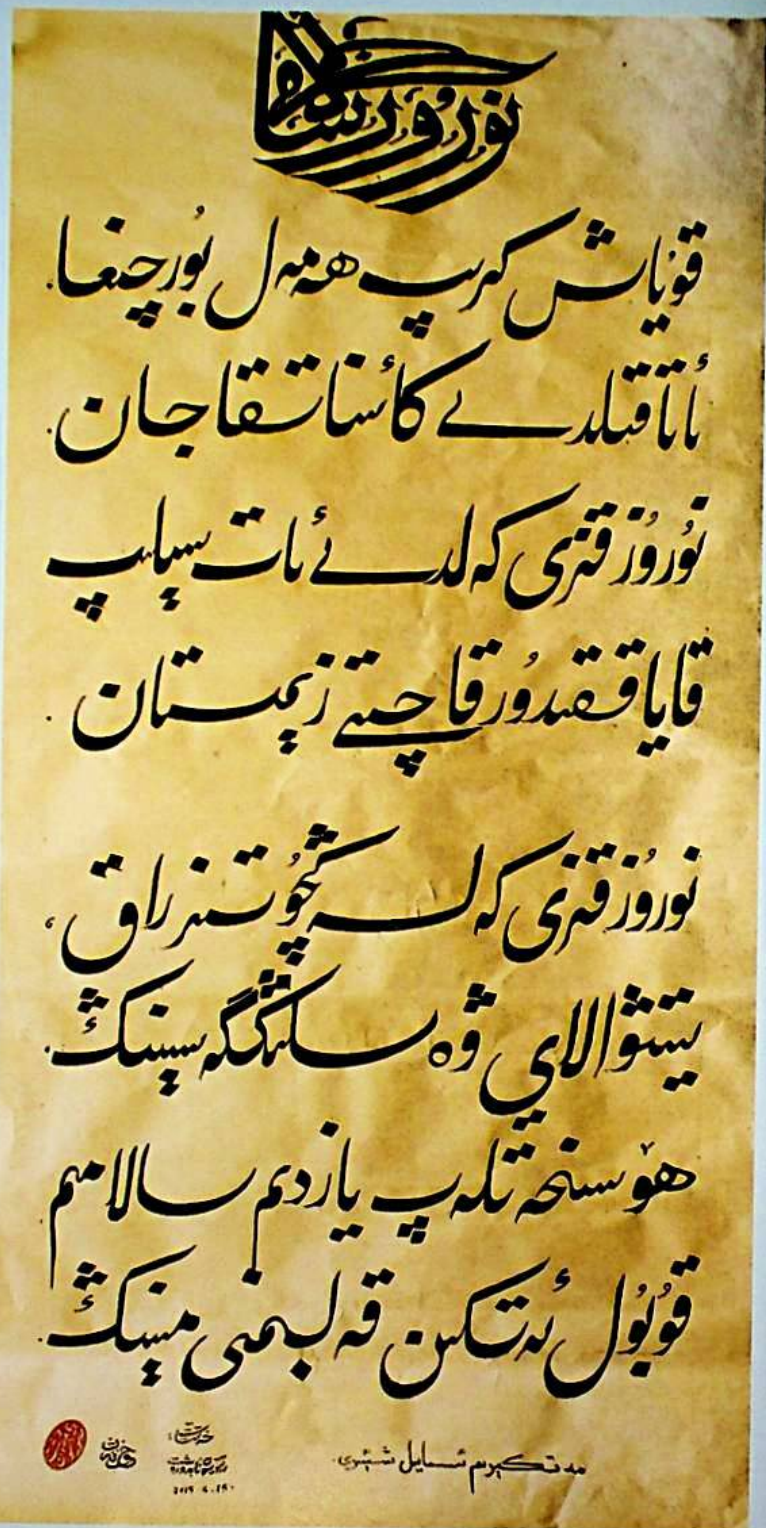 نورۇز
قۇياش كىرىپ ھەمەل بۇرچىغا.
ئاتا قىلدى كائىناتقا جان.
نورۇز قىزى كەلدى ئات سېلىپ
قاياققىدۇر قاچتى زېمىستان.
نورۇز قىزى كەلسەڭچۇ تېزراق،
يېتىۋالاي ۋەسلىڭگە سېنىڭ.
ھۆسنخەتلەپ يازدىم سالامىم
قوبۇل ئەتكىن قەلبىمنى مېنىڭ.
مەتكېرىم ئىسمايىل شېئىرى.